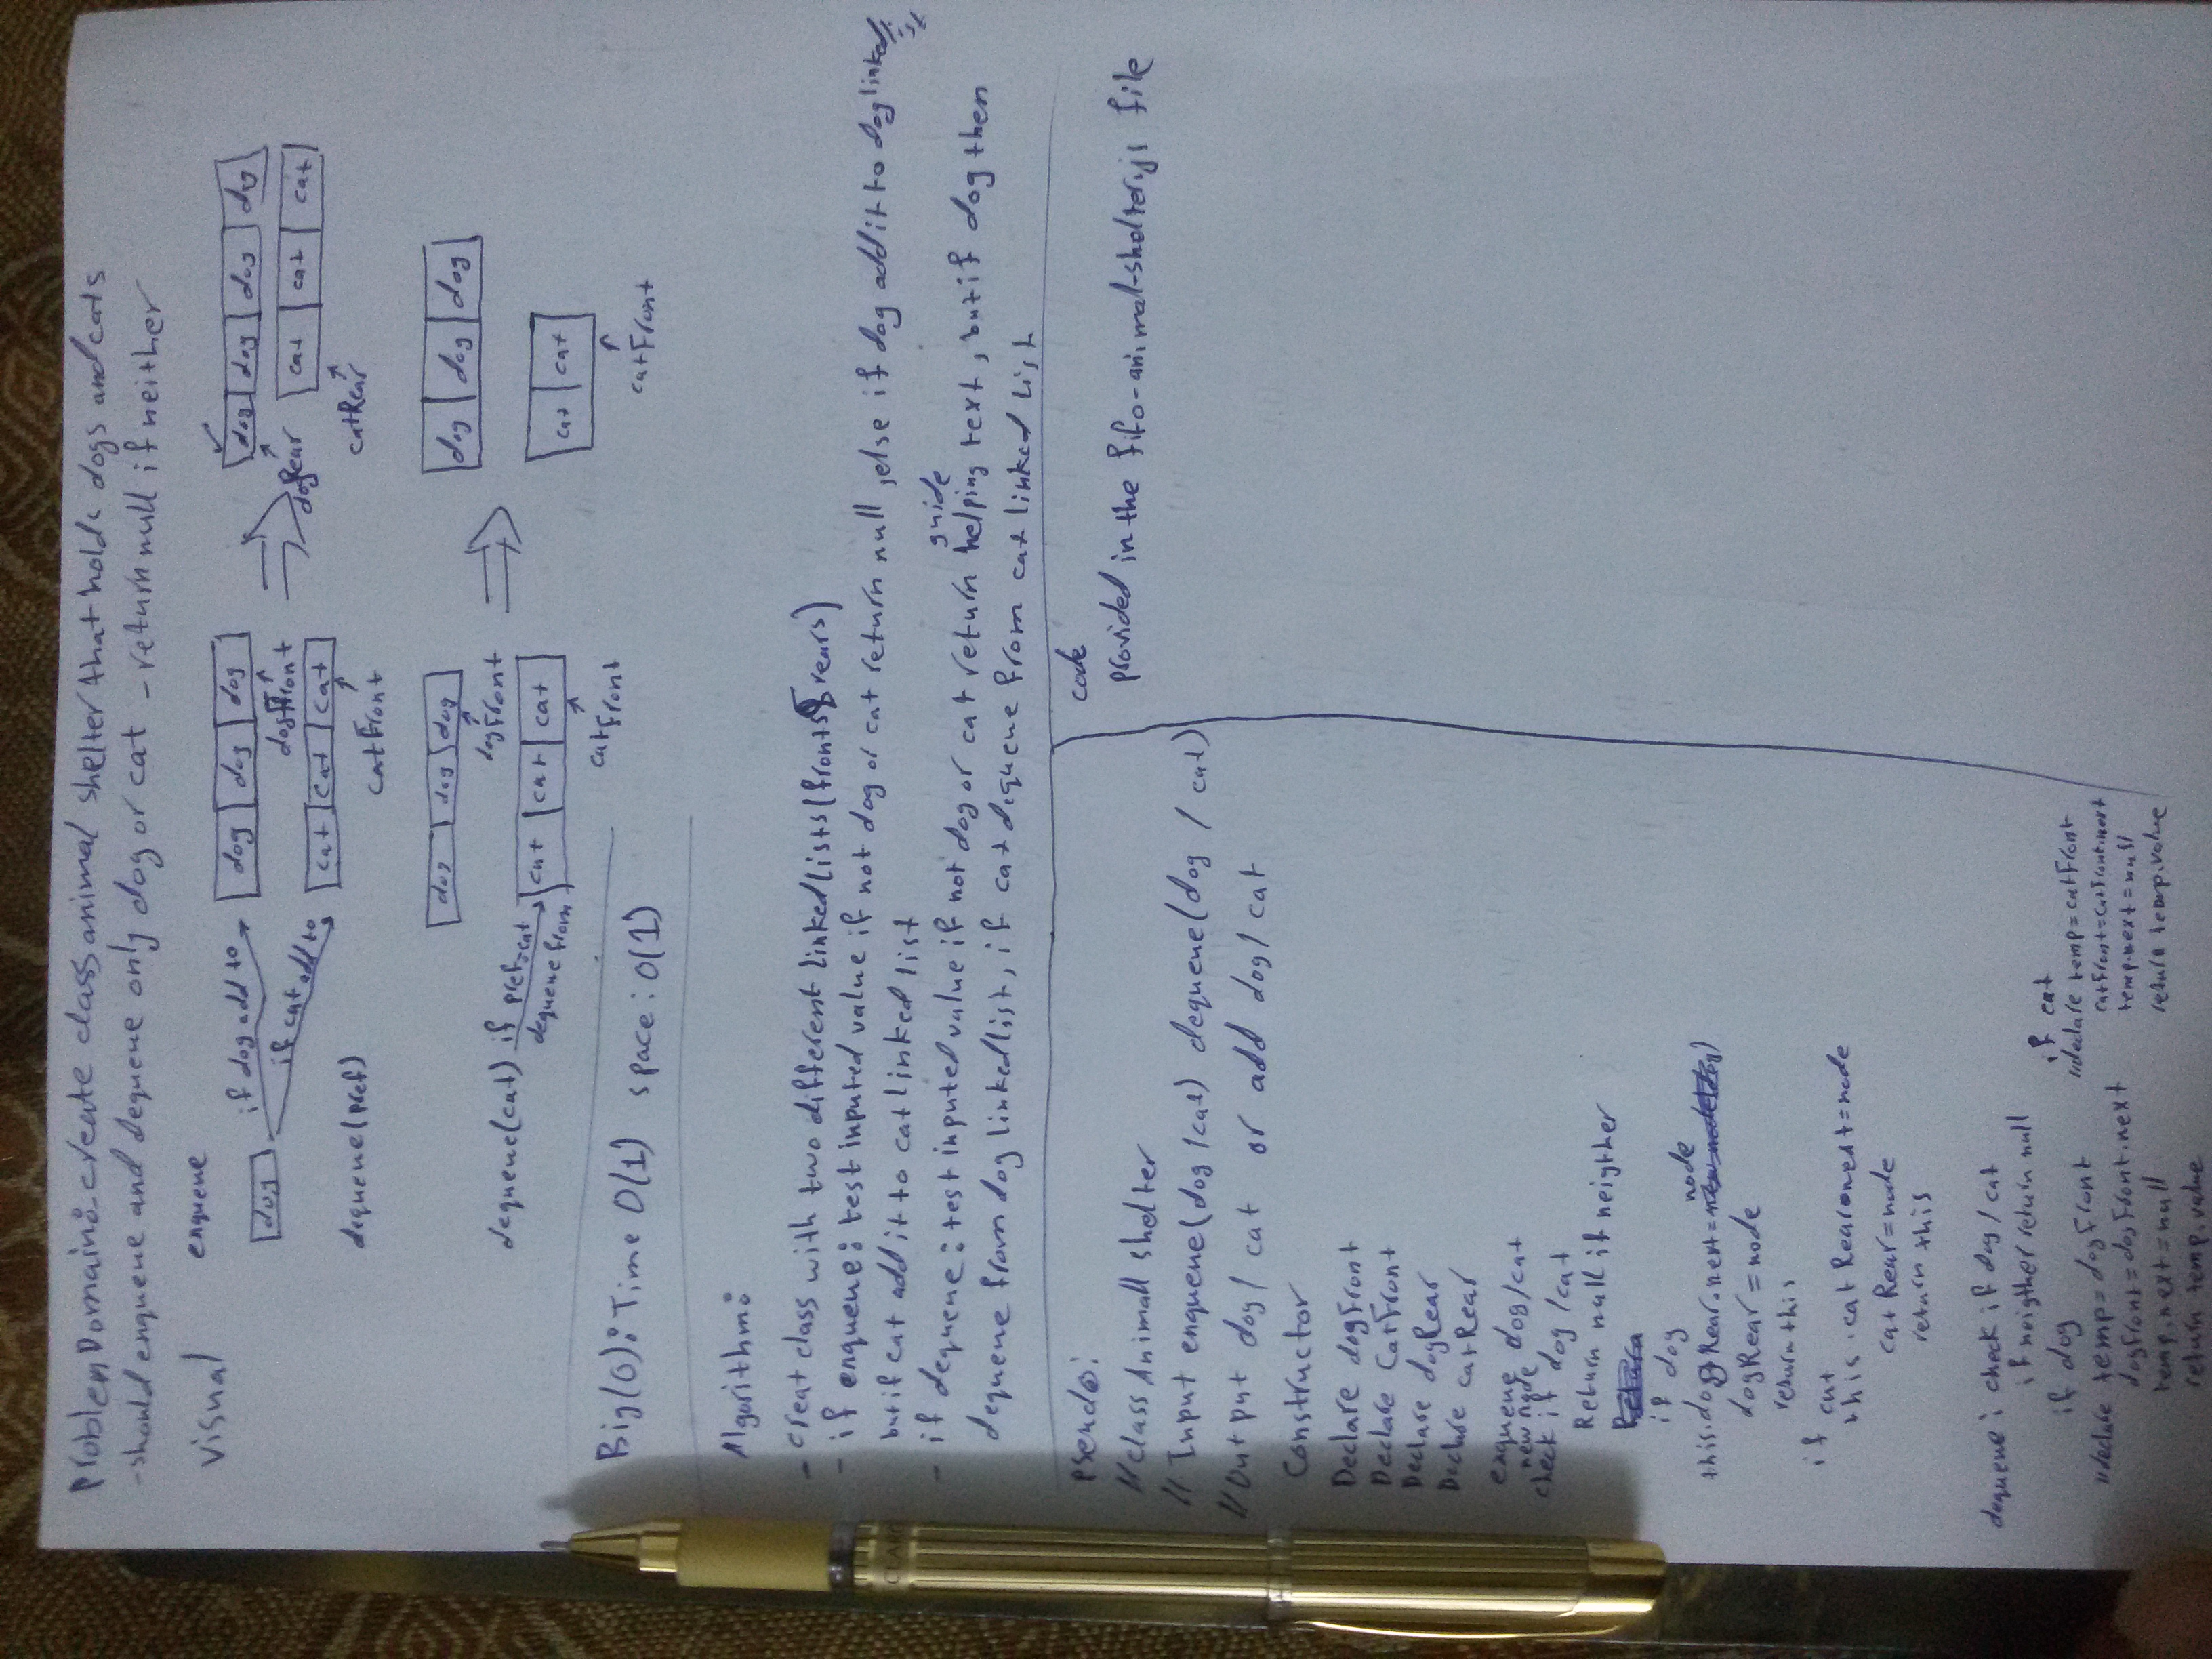 Problem Domain: create class animal shelter that holds dogs and cats
- should enqueue and dequeue only dog or cat - return null if neither
visual
enqueue
dog
if dog add to
if cat add to
dog dog dog
dogFront
cat cat cat
catFront
dog dog dog dog
dogRear
cat cat cat
catRear
dequeue(pref)
dog dog dog
dogFront
dequeue(cat) if pref=cat
dequeue from
cat cat cat
catFront
dog dog dog
cat cat
catFront
Big(O): Time O(1) space: O(1)
Algorithm:
- creat class with two different linked lists (fronts & rears)
- if enqueue: test inputed value if not dog or cat return null, else if dog add it to dog linked list
but if cat add it to cat linked list
- if dequeue: test inputed value if not dog or cat return helping guide text, but if dog then
dequeue from dog linkedlist, if cat dequeue from cat linked list
Pseudo:
// class Animall shelter
// Input enqueue(dog/cat) dequeue(dog / cat)
// Output dog/ cat or add dog/ cat
Constructor
Declare dogFront
Declare CatFront
Declare dogRear
Declare catRear
enqueue dog/cat
new node
check if dog /cat
Return null if neigther
Return
if dog
this.dogRear.next = node
dogRear = node
return this
if cat
this.catRear.next=node
catRear=node
return this
dequeue: check if dog / cat
if neigther return null
if dog
//declare temp = dogFront
dogFront = dogFront.next
temp.next = null
return temp.value
if cat
//declare temp=catFront
catFront=catFront.next
temp.next = null
return temp.value
code
provided in the fifo-animal-shelter.js file
CLARO